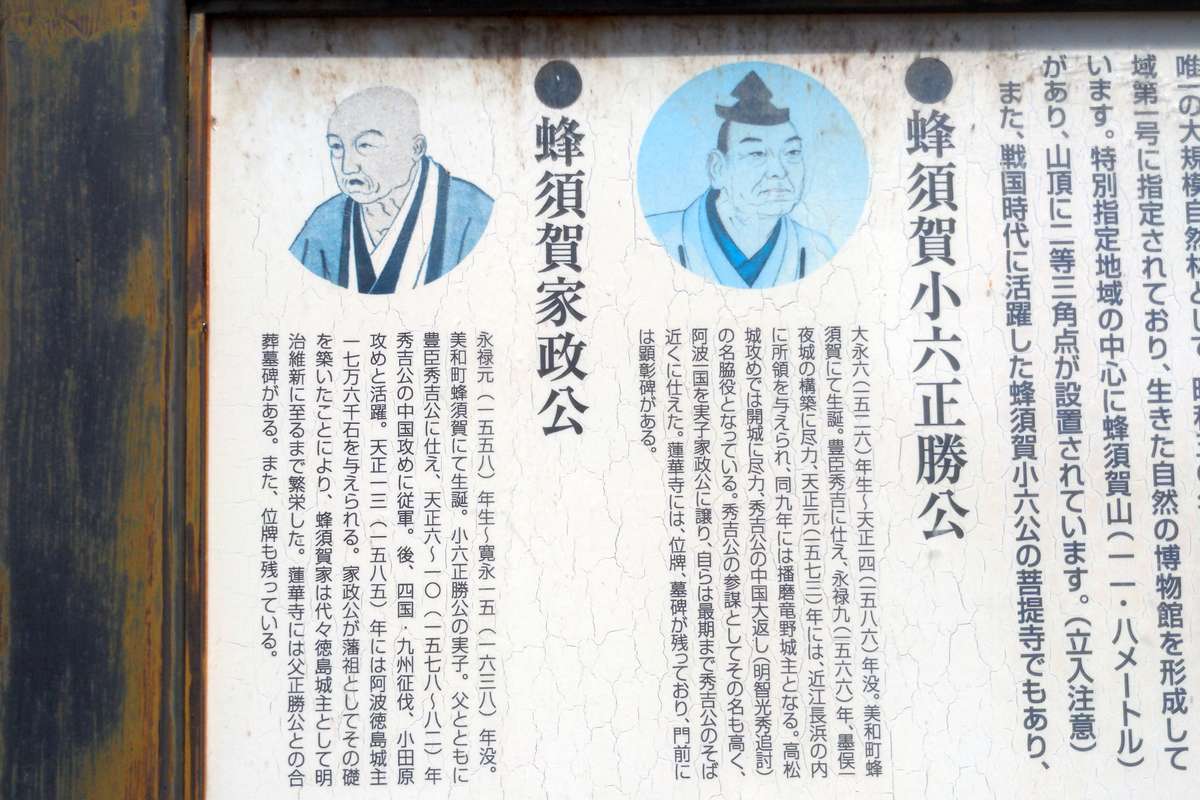 唯一の大規模自然林として、昭和
域第一号に指定されており、生きた自然の博物館を形成して
います。特別指定地域の中心に蜂須賀山(一一・八メートル)
があり、山頂に二等三角点が設置されています。(立入注意)
また、戦国時代に活躍した蜂須賀小六公の菩提寺でもあり、
●蜂須賀小六正勝公
大永六(一五二六)年生~天正一四(一五八六)年没。美和町蜂
須賀にて生誕。豊臣秀吉に仕え、永禄九(一五六六)年、墨俣一
夜城の構築に尽力、天正元(一五七三)年には、近江長浜の内
に所領を与えられ、同九年には播磨竜野城主となる。高松
城攻めでは開城に尽力、秀吉公の中国大返し(明智光秀追討)
の名脇役となっている。秀吉公の参謀としてその名も高く、
阿波一国を実子家政公に譲り、自らは最期まで秀吉公のそば
近くに仕えた。蓮華寺には、位牌、墓碑が残っており、門前に
は顕彰碑がある。
●蜂須賀家政公
永禄元(一五五八)年生~寛永一五(一六三八)年没。
美和町蜂須賀にて生誕。小六正勝公の実子。父とともに
豊臣秀吉公に仕え、天正六~一〇(一五七八~八二)年
秀吉公の中国攻めに従軍。後、四国・九州征伐、小田原
攻めと活躍。天正一三(一五八五)年には阿波徳島城主
一七万六千石を与えられる。家政公が藩祖としてその礎
を築いたことにより、蜂須賀家は代々徳島城主として明
治維新に至るまで繁栄した。蓮華寺には父正勝公との合
葬墓碑がある。また、位牌も残っている。